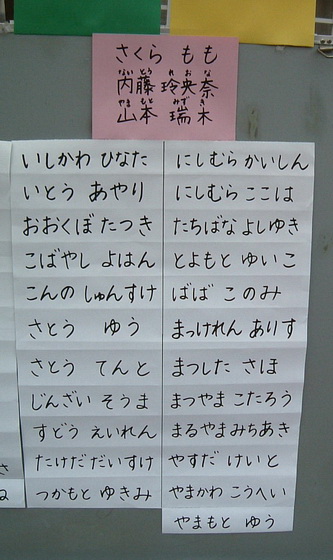 さくら もも
ないとう れおな
内藤 玲央奈
やまもと みずき
山本 瑞木
いしかわ ひなた
いとう あやり
おおくぼ たつき
こばやし よはん
こんの しゅんすけ
さとう ゆう
さとう てんと
じんざい そうま
すどう えいれん
たけだ だいすけ
つかもと ゆきみ
にしむら かいしん
にしむら ここは
たちばな よしゆき
とよもと ゆいこ
ばば このみ
まっけれん ありす
まつした さほ
まつやま こたろう
まるやま みちあき
やすだ けいと
やまかわ こうへい
やまもと ゆう
さ